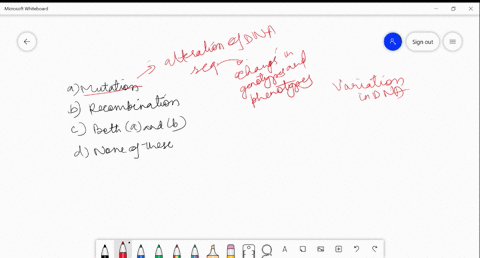 Microsoft Whiteboard
Sign out
alteration of DNA
seq
change in
genotypes and
phenotypes
Variation
in DNA
a) Mutation
b) Recombination
c) Both (a) and (b)
d) None of these